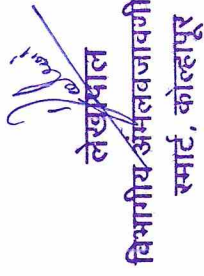 लेखापाल
विभागीय अंमलबजावणी
स्मार्ट, कोल्हापूर